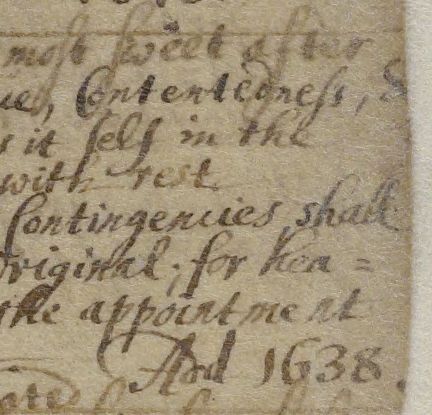 most sweet after
ue, Contentedness, &
s it self in the
with rest
Contingencies shall
Original; for hea=
the appointment
And 1638.